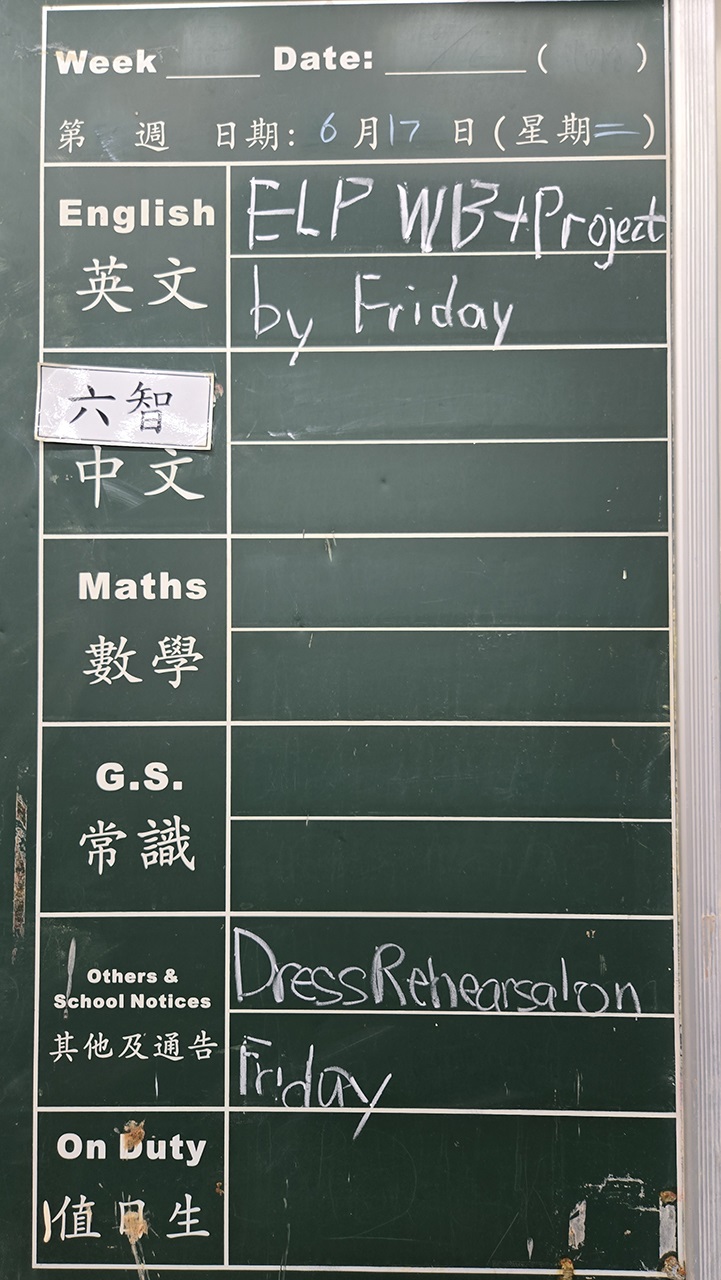 Week ____ Date: ________ ( )
第 週 日期: 6 月 17 日 (星期二)
English
英文
ELP WB+Project
by Friday
六智
中文
Maths
數學
G.S.
常識
Others &
School Notices
其他及通告
Dress Rehearsal on
Friday
On Duty
值日生